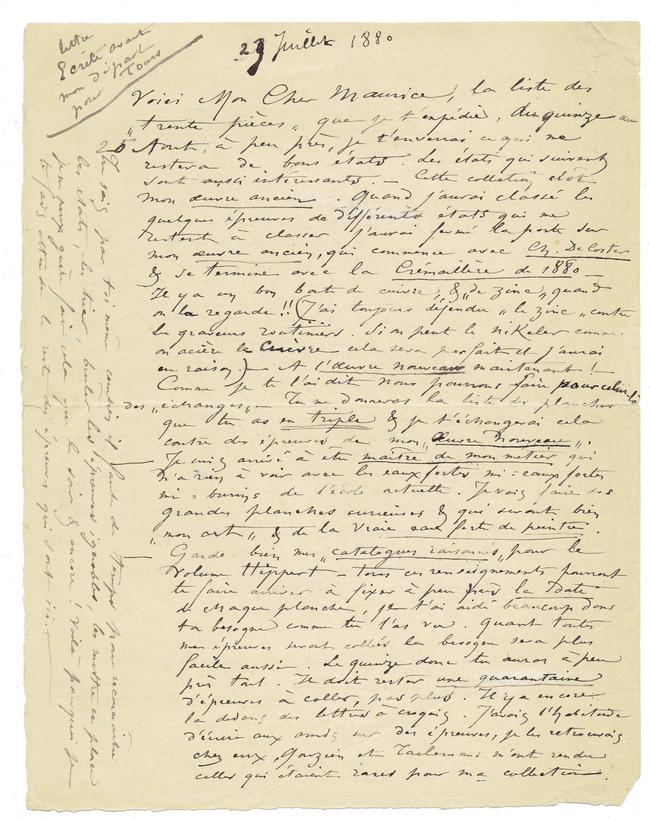 lettre
Écrite avant
mon départ
pour Tours
29 Juillet 1880
Voici Mon Cher Maurice, la liste des
"trente pièces" que je t'expédie, du quinze au
25 Aout, à peu près, je t'enverrai ce qui me
restera de bons états. Les états qui suivent
sont aussi intéressants. — Cette collection clot
mon œuvre ancien. Quand j'aurai classé les
quelques épreuves de différents états qui me
restent à classer j'aurai fermé la porte sur
mon œuvre ancien, qui commence avec Ch. De Coster
& se termine avec la Crémaillère de 1880 —
Il y a un bon bout de cuivre, & "de zinc", quand
on la regarde!! (J'ai toujours défendu "le zinc" contre
les graveurs routiniers. Si on peut le nikeler comme
on acière le cuivre cela sera parfait et j'aurai
eu raison) — A l'œuvre nouveau maintenant! —
Comme je te l'ai dit nous pourrons faire pour celui-là
des "échanges" — Tu me donneras la liste des planches
que tu as en triple & je t'échangerai cela
contre des épreuves de mon "œuvre nouveau".
Je suis arrivé à être maître de mon métier qui
n'a rien à voir avec les eaux fortes mi-eaux fortes
mi-burins de l'école actuelle. Je vais faire des
grandes planches curieuses & qui seront bien
"mon art" & de la vraie eau forte de peintre.
Garde bien mes "catalogues raisonnés" pour le
volume Hippert — tous ces renseignements pourront
te faire arriver à fixer à peu près la date
de chaque planche, je t'ai aidé beaucoup dans
ta besogne comme tu l'as vu. Quant toutes
mes épreuves seront collées la besogne sera plus
facile aussi. Le quinze donc tu auras à peu
près tout. Il doit rester une quarantaine
d'épreuves à coller, pas plus. Il y a encore
là dedans des lettres à croquis. J'avais l'habitude
d'écrire aux amis sur des épreuves, je les retrouvais
chez eux, et Taelemans m'ont rendu
celles qui étaient rares pour ma collection.
Tu sais par toi même combien il faut de temps pour reconnaître
les états, les trier, bruler les épreuves ignobles, les mettre en place
je ne peux guère faire cela que le soir, & encore! Voilà pourquoi je
te fais attendre le reste des épreuves qui sont ici. —